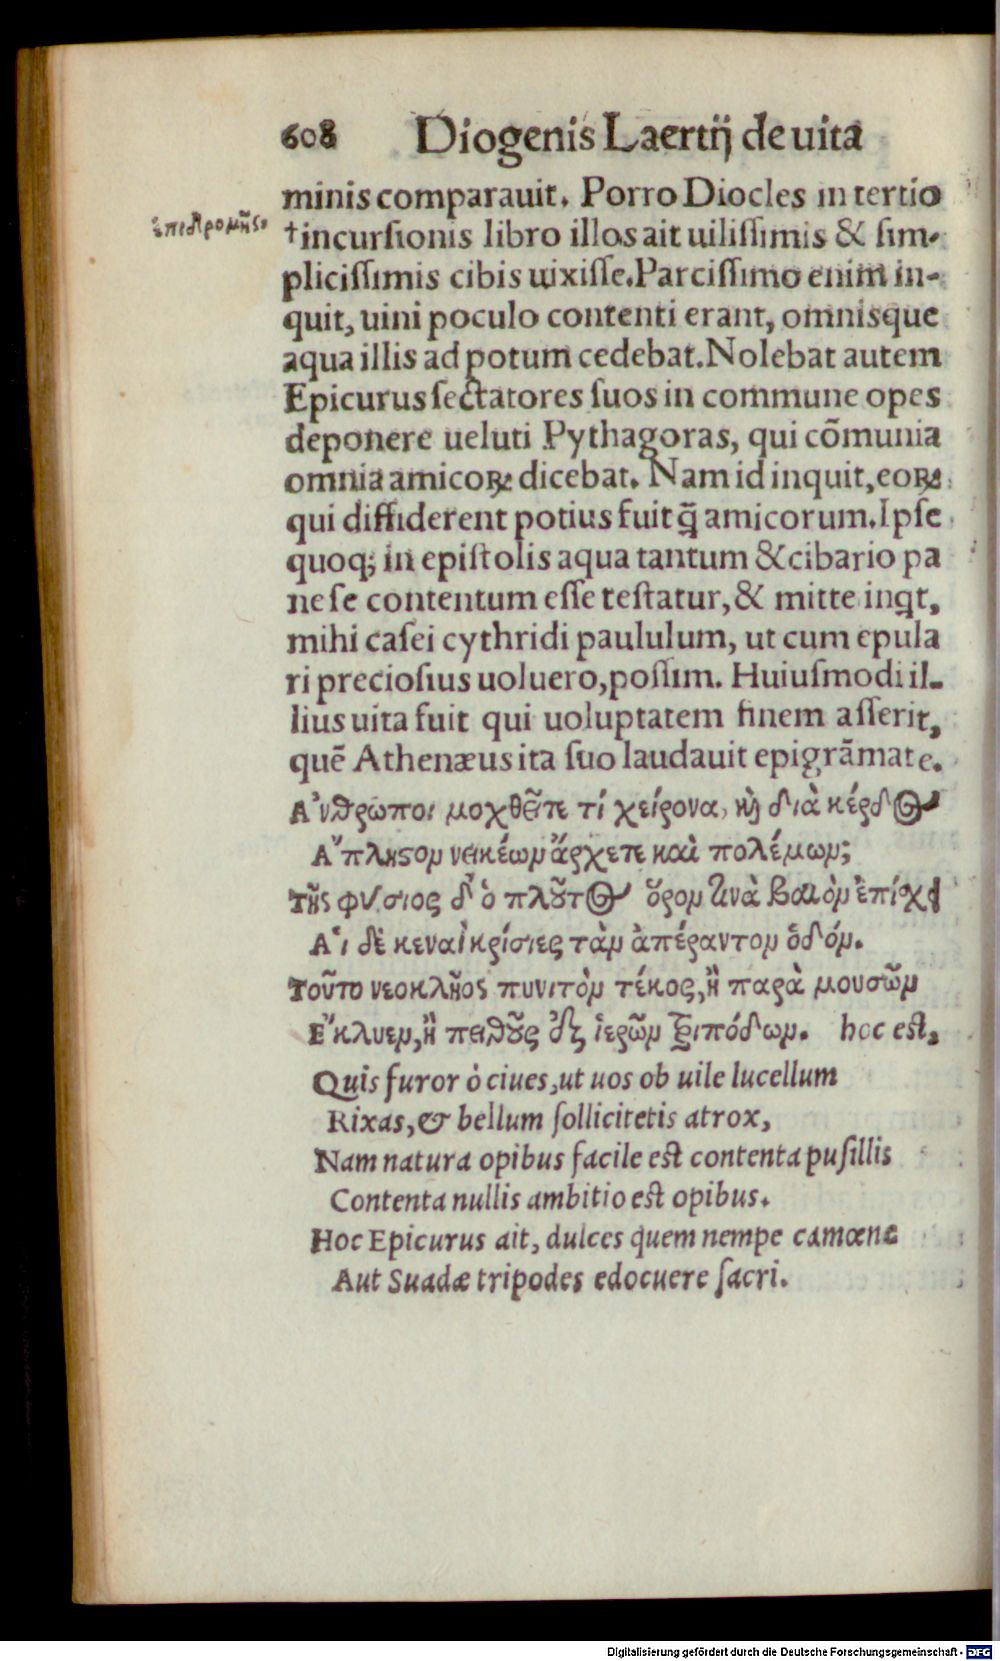 608 Diogenis Laertij de uita
minis comparauit. Porro Diocles in tertio
ἐπιδρομῆς. †incursionis libro illos ait uilissimis & sim-
plicissimis cibis uixisse. Parcissimo enim in-
quit, uini poculo contenti erant, omnisque
aqua illis ad potum cedebat. Nolebat autem
Epicurus sectatores suos in commune opes
deponere ueluti Pythagoras, qui cōmunia
omnia amicoꝝ dicebat. Nam id inquit, eoꝝ
qui diffiderent potius fuit q̃ amicorum. Ipse
quoq; in epistolis aqua tantum & cibario pa
ne se contentum esse testatur, & mitte inqt,
mihi casei cythridi paululum, ut cum epula
ri preciosius uoluero, possim. Huiusmodi il-
lius uita fuit qui uoluptatem finem asserit,
quē Athenæus ita suo laudauit epigrāmate.
Ἄνθρωποι μοχθεῖτε τί χείρονα, καὶ διὰ κέρδος
Ἄπληστον νεικέων ἄρχετε καὶ πολέμων;
Τῆς φύσιος δ' ὁ πλοῦτος ὅρον τινὰ βαιὸν ἐπίσχει
Αἱ δὲ κεναὶ κρίσιες τὰν ἀπέραντον ὁδόν.
Τοῦτο νεοκλῆος πυνιτὸν τέκος, ἢ παρὰ μουσῶν
Ἔκλυεν, ἢ πειθοῦς ἐξ ἱερῶν τριπόδων. hoc est,
Quis furor ò ciues, ut uos ob uile lucellum
Rixas, & bellum sollicitetis atrox,
Nam natura opibus facile est contenta pusillis
Contenta nullis ambitio est opibus.
Hoc Epicurus ait, dulces quem nempe camœne
Aut Suadæ tripodes edocuere sacri.
Digitalisierung gefördert durch die Deutsche Forschungsgemeinschaft - DFG